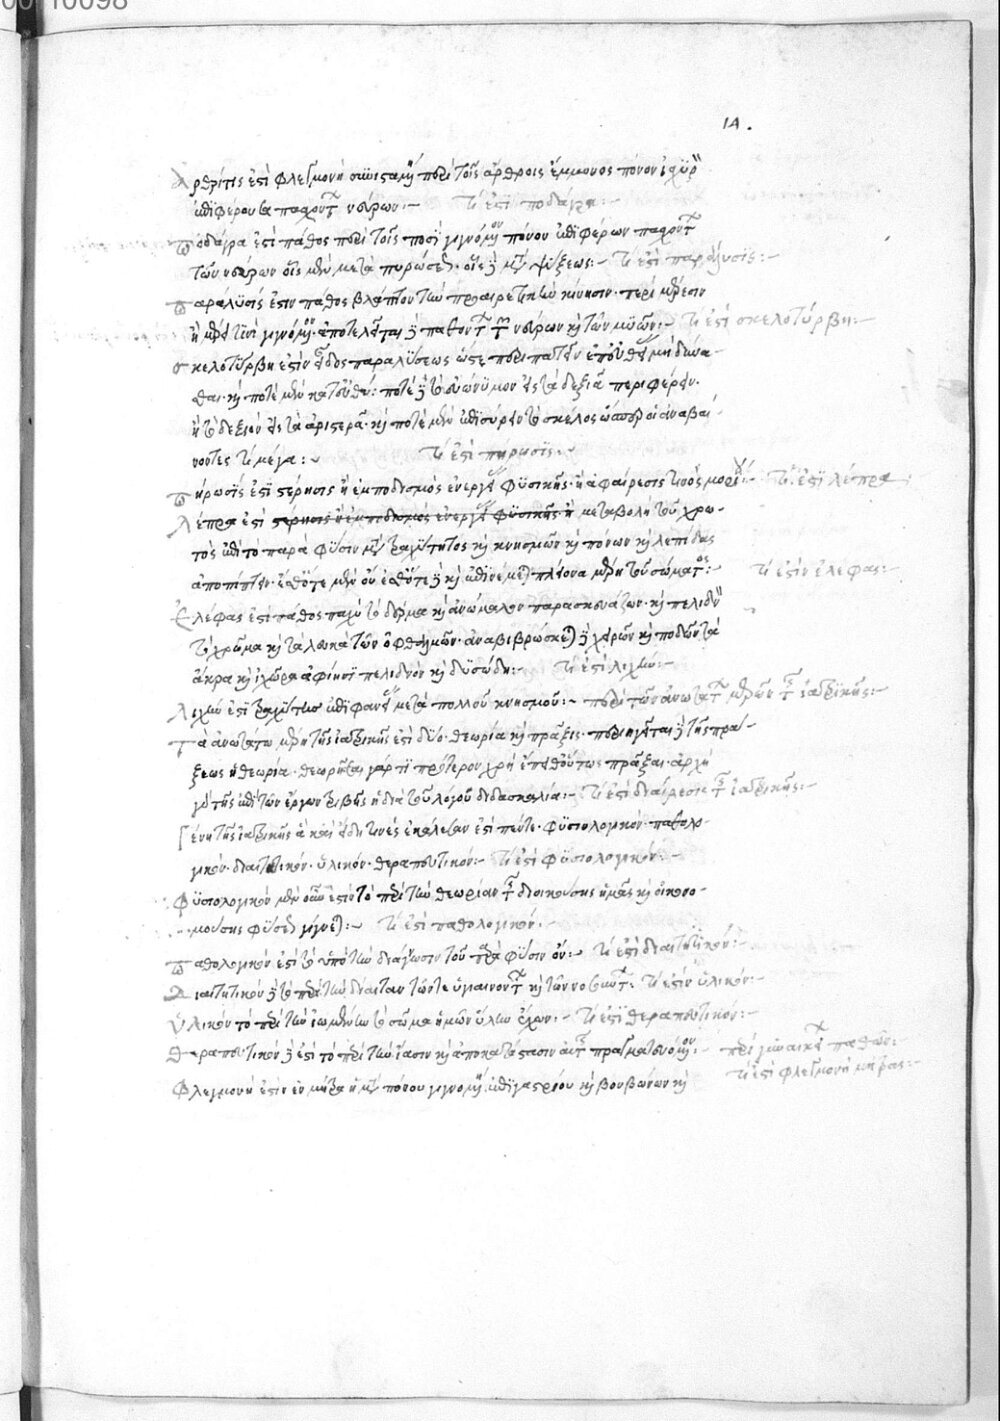 14.
Ἀρθρίτις ἐστὶ φλεγμονὴ συνισταμένη περὶ τοῖς ἄρθροις ἔμμονος πόνον ἰσχυρὸν
ἐπιφέρουσα παχύντ νεύρων:~ τί ἐστὶ ποδάγρα:~
Ποδάγρα ἐστὶ πάθος περὶ τοῖς ποσὶ γινόμενον πόνον ἐπιφέρων παχύντ
τῶν νεύρων οἷς μὲν μετὰ πυρώσεως. οἷς δὲ μετὰ ψύξεως:~ τί ἐστὶ παράλυσις:~
Παράλυσίς ἐστιν πάθος βλάπτον τὴν προαιρετικὴν κίνησιν. περὶ μέρεσιν
ἢ μέρει τινὶ γινόμενον. ἀποτελεῖται δὲ παθόντων τῶν νεύρων καὶ τῶν μυῶν:~ τί ἐστὶ σκελοτύρβη:~
σκελοτύρβη ἐστὶν εἶδος παραλύσεως ὥστε περιπατεῖν ἐπ' εὐθείας μὴ δύνα-
σθαι. καὶ ποτὲ μὲν κατευθύ: ποτὲ δὲ τὸ εὐώνυμον εἰς τὰ δεξιὰ περιφέρειν.
ἢ τὸ δεξιὸν εἰς τὰ ἀριστερά. καὶ ποτὲ μὲν ἐπισύρειν τὸ σκέλος ὥσπερ οἱ ἀναβαί-
νοντες τι μέγα:~ τί ἐστὶ πήρωσις:~
Πήρωσίς ἐστι στέρησις ἢ ἐμποδισμὸς ἐνεργείας φυσικῆς. ἢ ἀφαίρεσις τινὸς μορίου:~ τί ἐστὶ λέπρα
Λέπρα ἐστὶ στέρησις ἢ ἐμποδισμὸς ἐνεργείας φυσικῆς ἢ μεταβολὴ τοῦ χρω-
τὸς ἐπὶ τὸ παρὰ φύσιν μετὰ τραχύτητος καὶ κνησμῶν καὶ πόνων καὶ λεπίδας
ἀποπίπτειν. ἐσθότε μὲν οὖν ἐσθότε δὲ καὶ ἐπινέμεται πλείονα μέρη τοῦ σώματος:~ τί ἐστιν ἐλέφας:~
Ἐλέφας ἐστὶ πάθος παχὺ τὸ δέρμα καὶ ἀνώμαλον παρασκευάζων. καὶ πελιδνὸν
τὸ χρῶμα καὶ τὰ λευκὰ τῶν ὀφθαλμῶν. ἀναβιβρώσκεται δὲ χειρῶν καὶ ποδῶν τὰ
ἄκρα καὶ ἰχῶρα ἀφίησι πελιδνὸν καὶ δυσώδη:~ τί ἐστὶ λιχήν:~
Λιχήν ἐστι τραχύτης ἐπιφανείας μετὰ πολλοῦ κνησμοῦ:~ περὶ τῶν ἀνωτάτω μερῶν τῆς ἰατρικῆς:~
Τὰ ἀνωτάτω μέρη τῆς ἰατρικῆς ἐστὶ δύο. θεωρία καὶ πρᾶξις. προηγεῖται δὲ τῆς πρά-
ξεως ἡ θεωρία. θεωρῆσαι γάρ τι πρότερον χρὴ ἔπειθ' οὕτως πρᾶξαι. ἀρχὴ
γὰρ τῆς ἐπὶ τῶν ἔργων τριβῆς ἡ διὰ τοῦ λόγου διδασκαλία:~ τί ἐστὶ διαίρεσις τῆς ἰατρικῆς:~
Γένη τῆς ἰατρικῆς ἃ καὶ εἴδη τινὲς ἐκάλεσαν ἐστὶ πέντε. φυσιολογικὸν. παθολο-
γικὸν. διαιτητικόν. ὑλικόν. θεραπευτικόν:~ τί ἐστὶ φυσιολογικόν:~
Φυσιολογικὸν μὲν οὖν ἐστὶν τὸ περὶ τὴν θεωρίαν τῆς διοικούσης ἡμᾶς καὶ οἰκονο-
μούσης φύσεως γίνεται:~ τί ἐστὶ παθολογικόν.
Παθολογικὸν ἐστὶ τὸ ὑπὸ τὴν διάγνωσιν τοῦ παρὰ φύσιν ὄν:~ τί ἐστὶ διαιτητικόν:~
Διαιτητικὸν δὲ τὸ περὶ τὴν δίαιταν τῶν τε ὑγιαινόντων καὶ τῶν νοσούντων: τί ἐστὶν ὑλικόν:~
Ὑλικὸν τὸ περὶ τὴν τὸ σῶμα ἡμῶν ὕλην ἔχων:~ τί ἐστὶ θεραπευτικόν:~
Θεραπευτικὸν δὲ ἐστὶ τὸ περὶ τὴν ἴασιν καὶ ἀποκατάστασιν αὐτῶν πραγματευόμενον:~ περὶ γυναικείων παθῶν:
τί ἐστὶ φλεγμονὴ μήτρας:~
Φλεγμονὴ ἐστὶν ἐν μήτρα ἡ μετὰ πόνου γινομένη ἐπιγαστρίου καὶ βουβώνων καὶ